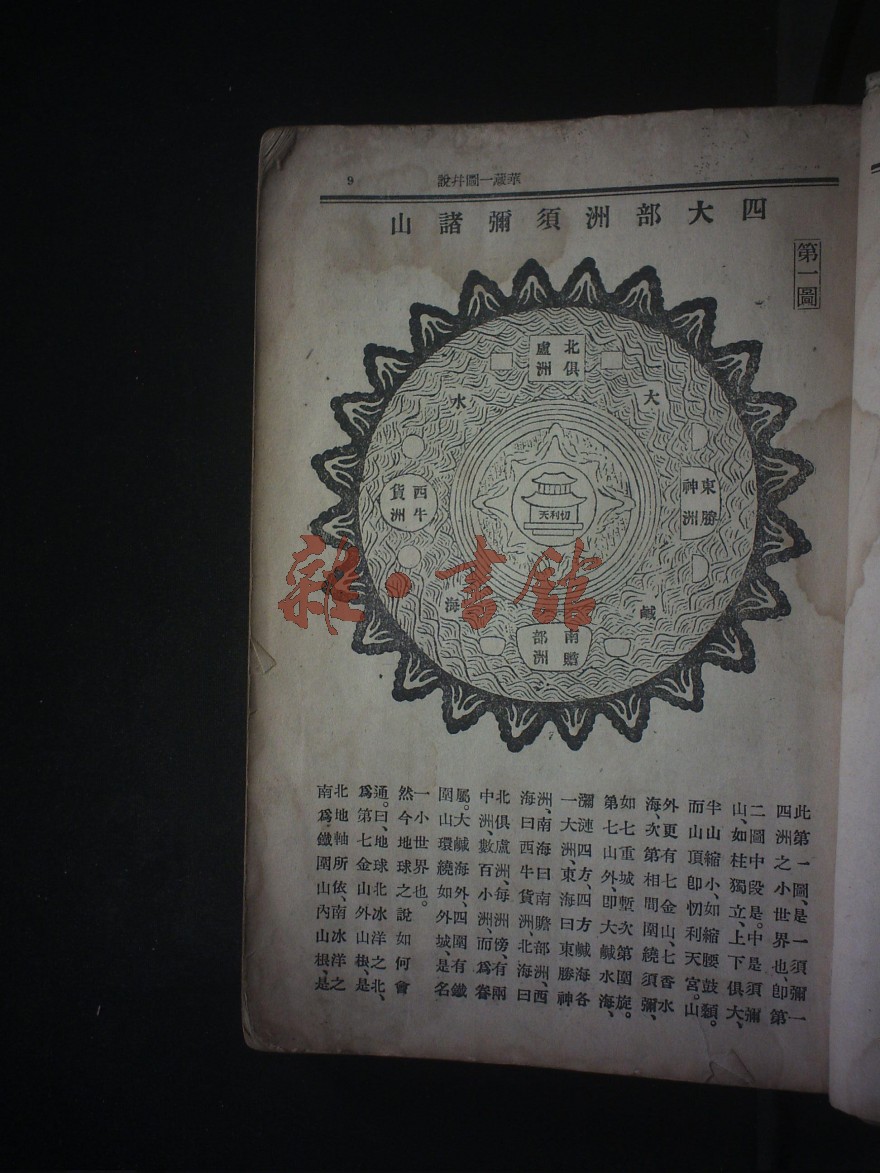 華藏一圖幷說
9
四大部洲須彌諸山
第一圖
北俱
盧洲
大
水
東勝
神洲
西牛
貨洲
忉利天
鹹
海
南贍
部洲
雜·書館
此第一圖、是一須彌一
四洲之小世界也、卽第
二圖中段是。中是須彌
山、如柱獨立、上下俱大、
半山縮小、如縮腰鼓顙。
而山頂卽忉利天宮。山
外更有七金山、七香水
海、次第相間圍繞須彌、
如七重城塹次第圍旋。
第七山外、卽大鹹水海、
瀰漣四方、四方鹹海各
一大洲、東海曰東勝神
洲、南海曰南贍部洲、西
海曰西牛貨洲、北海曰
北俱盧洲、每洲傍、有兩
中洲、數百小洲、而爲眷
屬。大鹹海外、四圍有鐵
圍山環繞如外城、是名
一小世界也。
然今地球之說如何會
通。曰、地球北冰洋之北、
爲第七金山外山根、是
北地軸所依、南冰洋之
南爲鐵圍山內山根、是